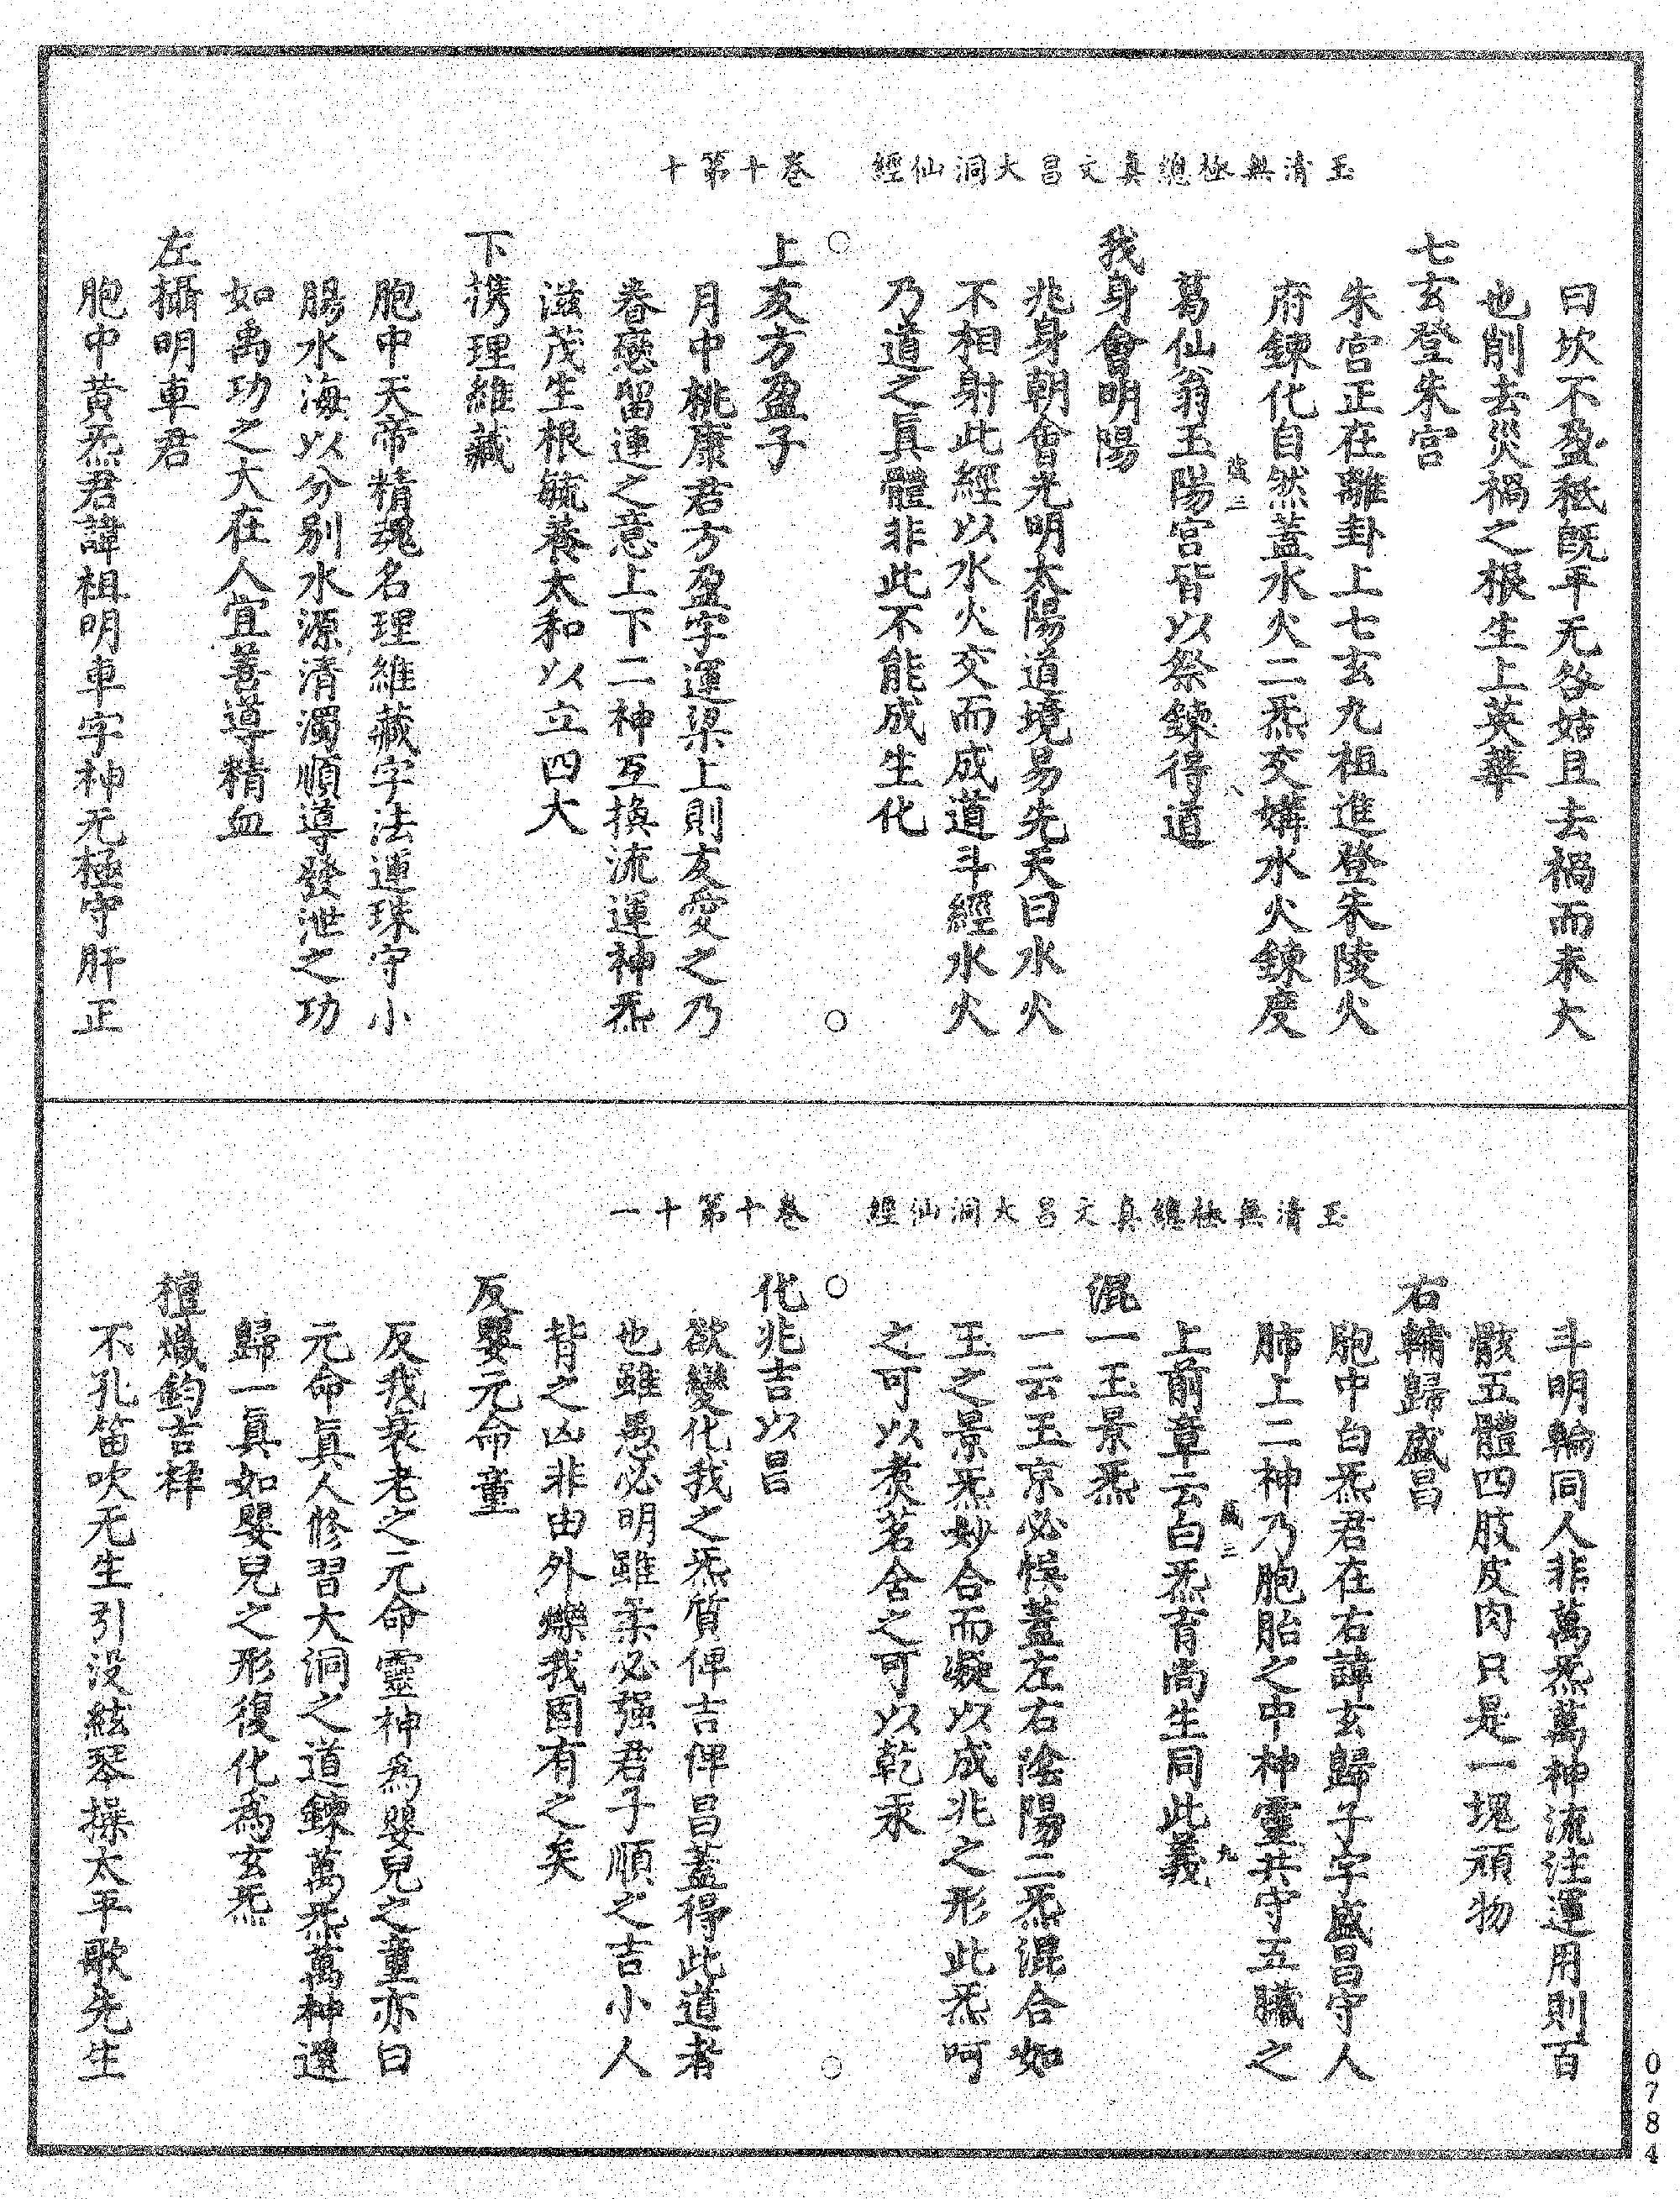 玉清無極總真文昌大洞仙經 卷十第十
曰坎不盈祗旣平无咎姑且去禍而未大
也削去災禍之根生上英華
七玄登朱宮
朱宮正在離卦上七玄九祖進登朱陵火
府鍊化自然蓋水火二炁交媾水火鍊度
葛仙翁玉陽宮皆以祭鍊得道
我身會明陽
兆身朝會光明太陽道境易先天曰水火
不相射此經以水火交而成道斗經水火
乃道之眞體非此不能成生化
上友方盈子
月中桃康君方盈字運梁上則友愛之乃
眷戀留連之意上下二神互換流運神炁
滋茂生根毓養太和以立四大
下携理維藏
胞中天帝精魂名理維藏字法運珠守小
腸水海以分别水源清濁順導發泄之功
如禹功之大在人宜善導精血
左攝明車君
胞中黃炁君諱祖明車字神无極守肝正
玉清無極總真文昌大洞仙經 卷十第十一
斗明輪同人非萬炁萬神流注運用則百
骸五體四肢皮肉只是一塊頑物
右輔歸盛昌
胞中白炁君在右諱玄歸子字盛昌守人
肺上二神乃胞胎之中神靈共守五臟之
上前章云白炁育尚生同此義
混一玉景炁
一云玉京必悞蓋左右陰陽二炁混合如
王之景炁妙合而凝以成兆之形此炁呵
之可以煑茗舍之可以乾汞
化兆吉以昌
欲變化我之炁質俾吉俾昌蓋得此道者
也雖愚必明雖柔必强君子順之吉小人
背之凶非由外爍我固有之矣
反嬰元命童
反我衰老之元命靈神為嬰兒之童亦曰
元命眞人修習大洞之道鍊萬炁萬神還
歸一眞如嬰兒之形復化為玄炁
檀熾鈞吉梓
不孔笛吹无生引没絃琴操太平歌先生
0784